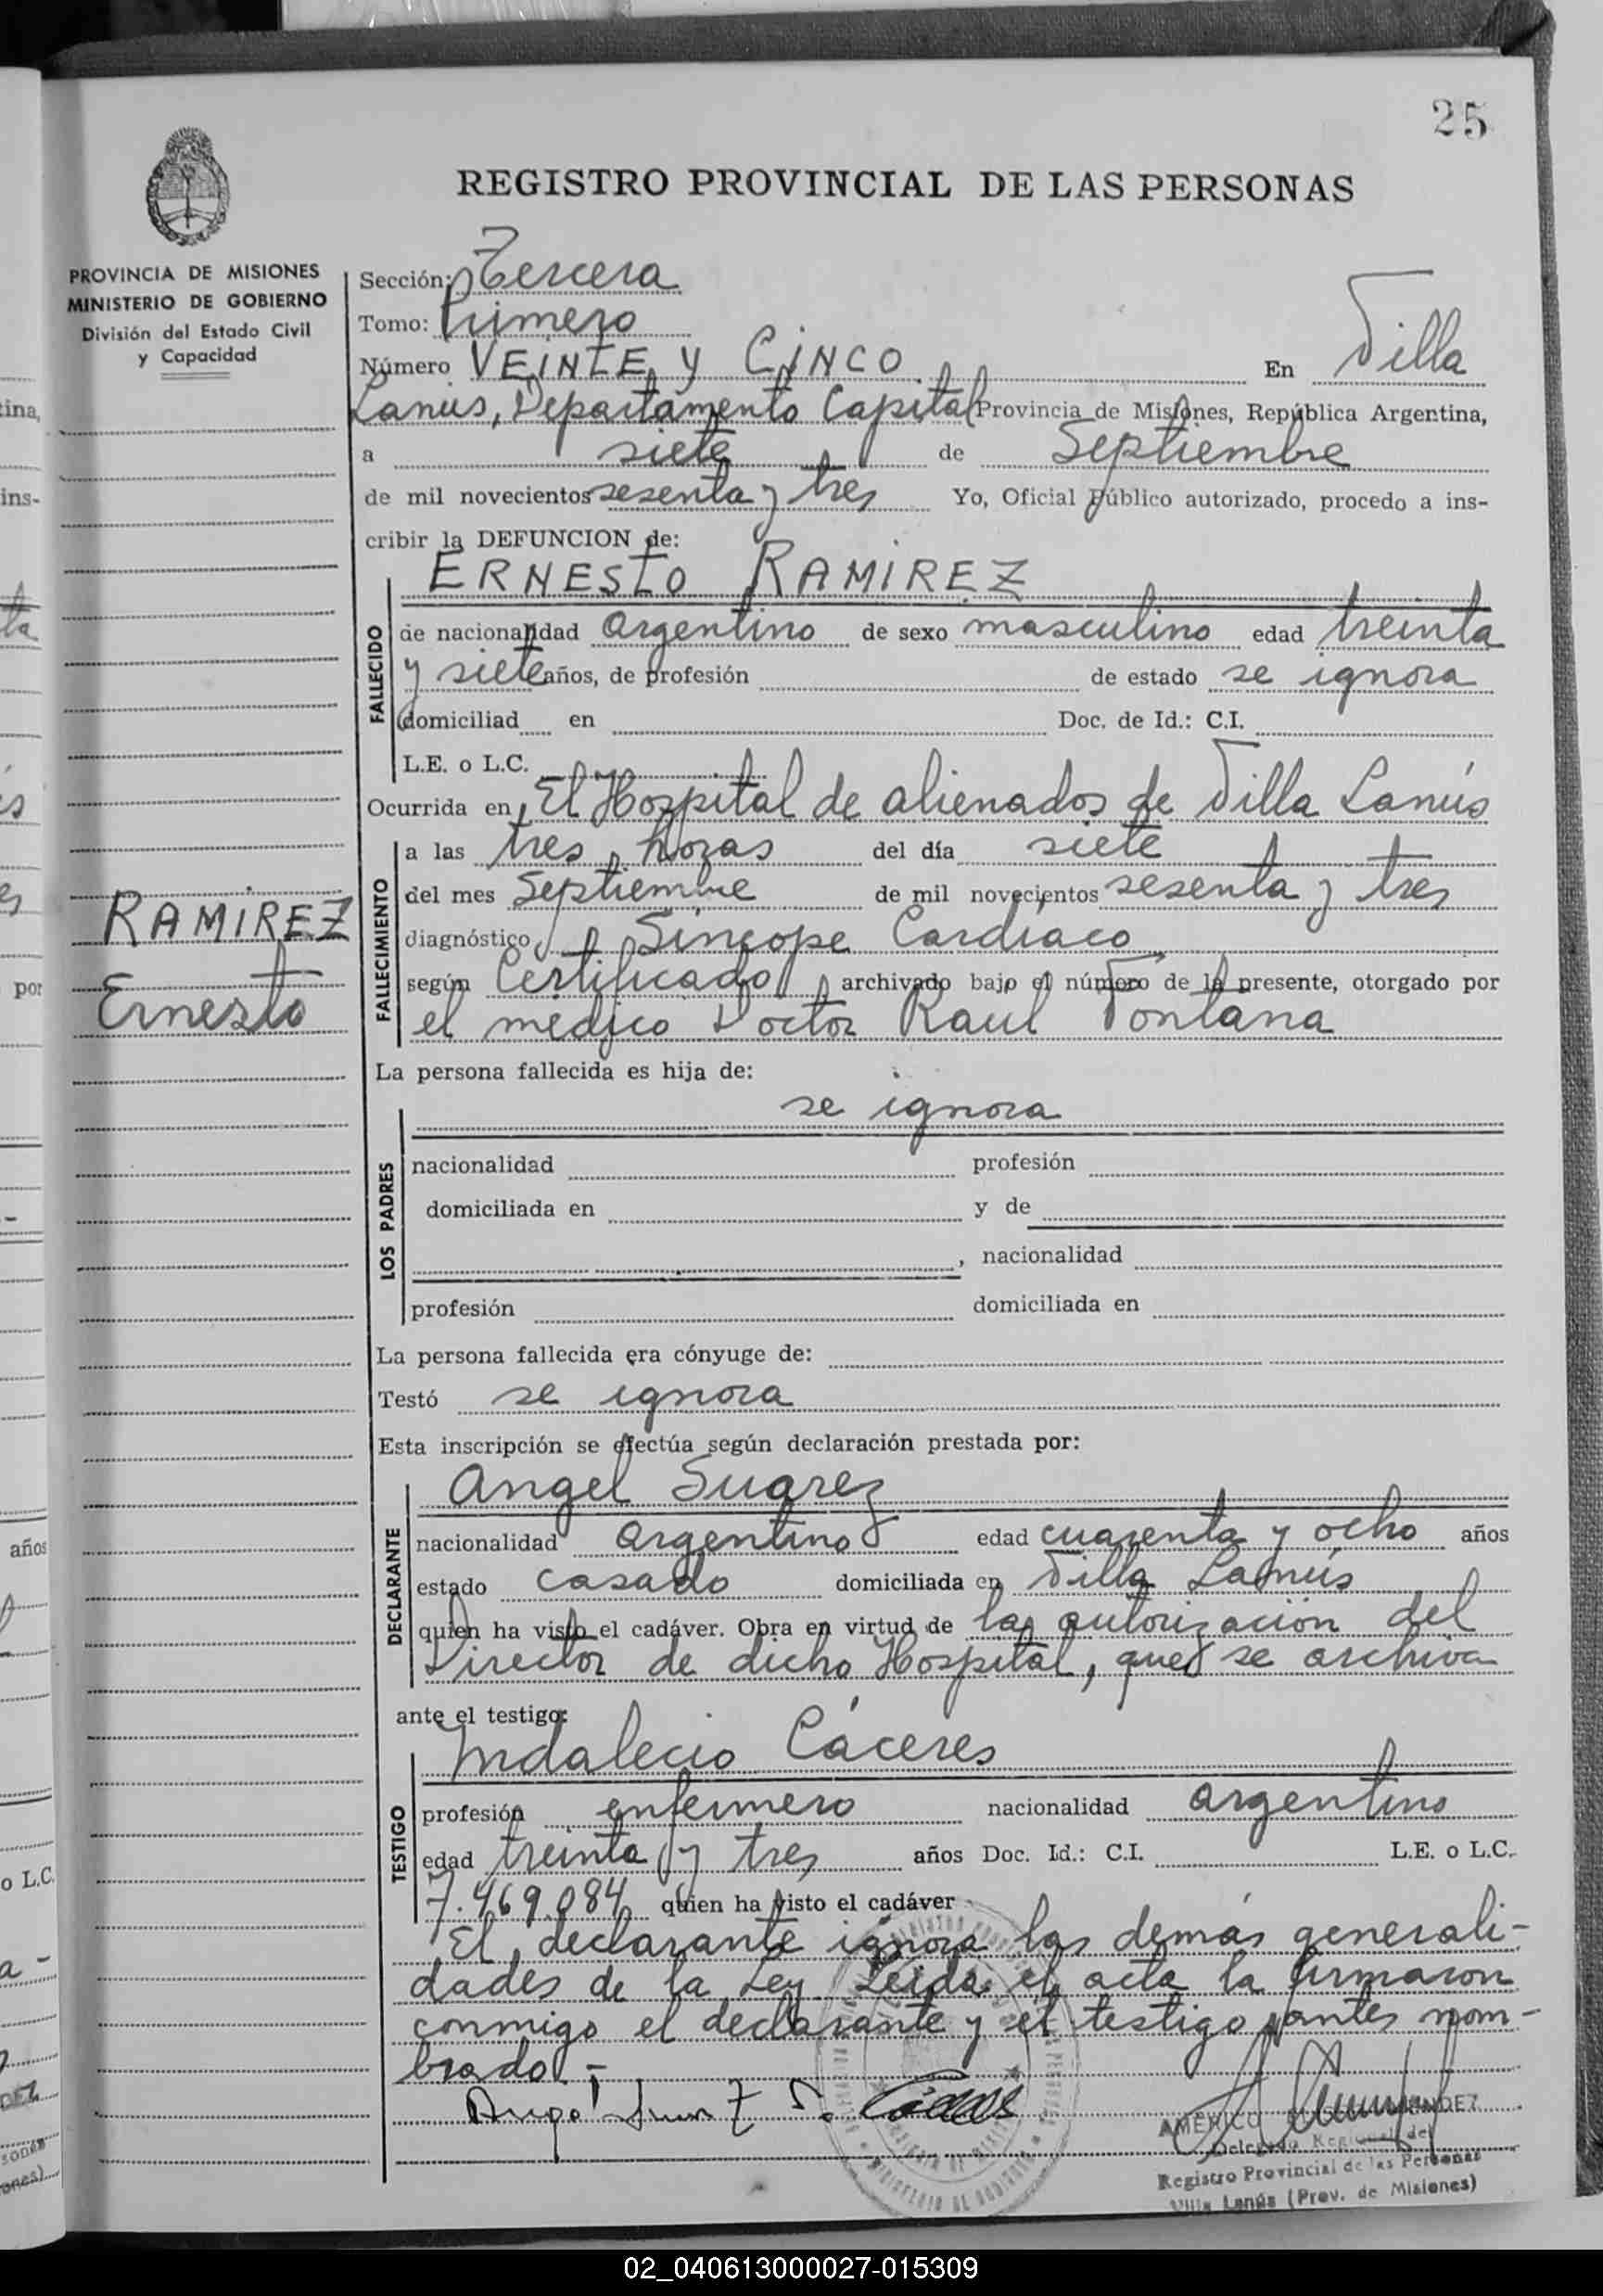 25
REGISTRO PROVINCIAL DE LAS PERSONAS
PROVINCIA DE MISIONES
MINISTERIO DE GOBIERNO
División del Estado Civil
y Capacidad
Sección: Tercera
Tomo: Primero
Número VEINTE y CINCO. En Villa
Lanus, Departamento Capital Provincia de Misiones, República Argentina,
a siete de Septiembre
de mil novecientos sesenta y tres Yo, Oficial Público autorizado, procedo a ins-
cribir la DEFUNCION de:
ERNESTO RAMIREZ
FALLECIDO
de nacionalidad argentino de sexo masculino edad treinta
y siete años, de profesión de estado se ignora
domiciliad en Doc. de Id.: C.I.
L.E. o L.C.
Ocurrida en El Hospital de alienados de Villa Lanús
FALLECIMIENTO
a las tres horas del día siete
del mes Septiembre de mil novecientos sesenta y tres
RAMIREZ
Ernesto
diagnóstico Síncope Cardíaco
según Certificado archivado bajo el número de la presente, otorgado por
el medico Doctor Raul Fontana
La persona fallecida es hija de:
se ignora
LOS PADRES
nacionalidad profesión
domiciliada en y de
, nacionalidad
profesión domiciliada en
La persona fallecida era cónyuge de:
Testó se ignora
Esta inscripción se efectúa según declaración prestada por:
Angel Suarez
DECLARANTE
nacionalidad argentino edad cuarenta y ocho años
estado casado domiciliada en Villa Lanús
quien ha visto el cadáver. Obra en virtud de la autorización del
Director de dicho Hospital, que se archiva
ante el testigo:
Indalecio Cáceres
TESTIGO
profesión enfermero nacionalidad argentino
edad treinta y tres años Doc. Id.: C.I. L.E. o L.C.
7.469.084 quien ha visto el cadáver
El declarante ignora las demás generali-
dades de la Ley Leída el acta la firmaron
conmigo el declarante y el testigo antes nom-
brado.-
AMERICO
Delegado Regional del
Registro Provincial de las Personas
Villa Lanús (Prov. de Misiones)
02_040613000027-015309